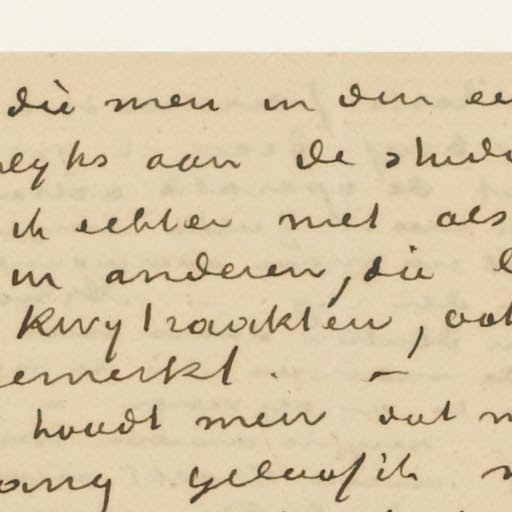 die men in den ee
aan de studi
ik echter niet als
in anderen, die
kwytraakten, ook
emerkt. –
houdt men dat
ang geloof ik